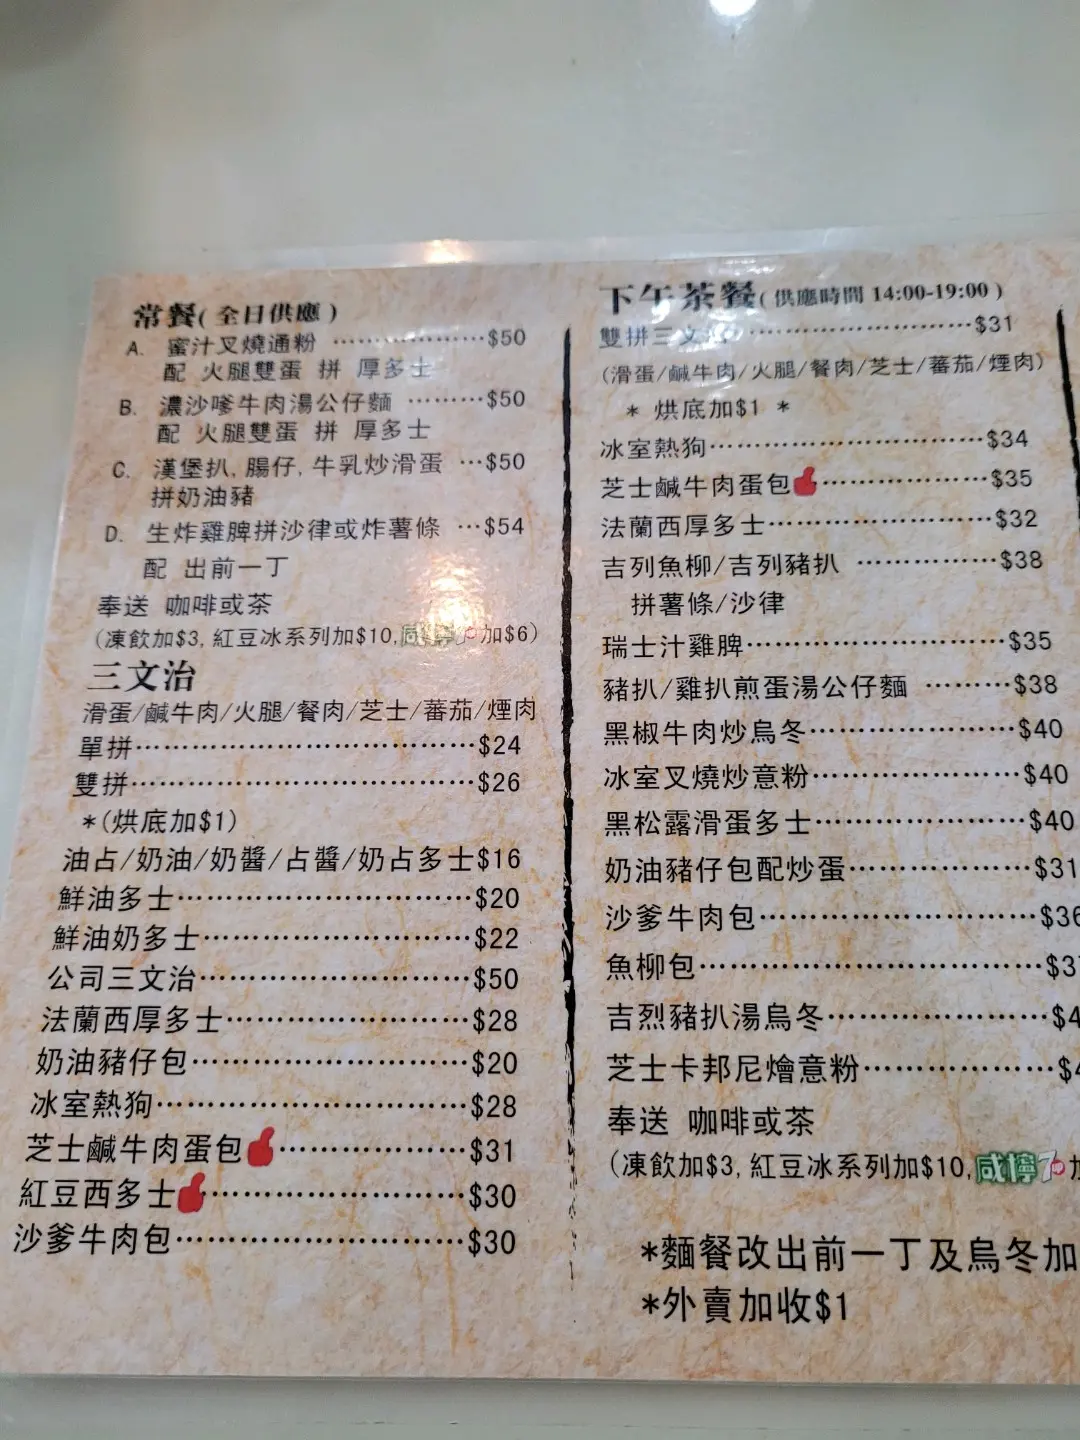 常餐(全日供應)
A. 蜜汁叉燒通粉 ………………$50
配 火腿雙蛋 拼 厚多士
B. 濃沙嗲牛肉湯公仔麵 ………$50
配 火腿雙蛋 拼 厚多士
C. 漢堡扒, 腸仔, 牛乳炒滑蛋 …$50
拼奶油豬
D. 生炸雞脾拼沙律或炸薯條 …$54
配 出前一丁
奉送 咖啡或茶
(凍飲加$3, 紅豆冰系列加$10, 咸檸7加$6)
三文治
滑蛋/鹹牛肉/火腿/餐肉/芝士/蕃茄/煙肉
單拼……………………………$24
雙拼……………………………$26
*(烘底加$1)
油占/奶油/奶醬/占醬/奶占多士$16
鮮油多士…………………………$20
鮮油奶多士………………………$22
公司三文治………………………$50
法蘭西厚多士……………………$28
奶油豬仔包………………………$20
冰室熱狗…………………………$28
芝士鹹牛肉蛋包………………$31
紅豆西多士………………………$30
沙爹牛肉包………………………$30
下午茶餐(供應時間 14:00-19:00)
雙拼三文治…………………$31
(滑蛋/鹹牛肉/火腿/餐肉/芝士/蕃茄/煙肉)
* 烘底加$1 *
冰室熱狗………………………$34
芝士鹹牛肉蛋包……………$35
法蘭西厚多士…………………$32
吉列魚柳/吉列豬扒 …………$38
拼薯條/沙律
瑞士汁雞脾……………………$35
豬扒/雞扒煎蛋湯公仔麵 ………$38
黑椒牛肉炒烏冬………………$40
冰室叉燒炒意粉………………$40
黑松露滑蛋多士………………$40
奶油豬仔包配炒蛋……………$31
沙爹牛肉包……………………$36
魚柳包…………………………$3
吉烈豬扒湯烏冬………………$4
芝士卡邦尼燴意粉……………$4
奉送 咖啡或茶
(凍飲加$3, 紅豆冰系列加$10, 咸檸7加
*麵餐改出前一丁及烏冬加
*外賣加收$1